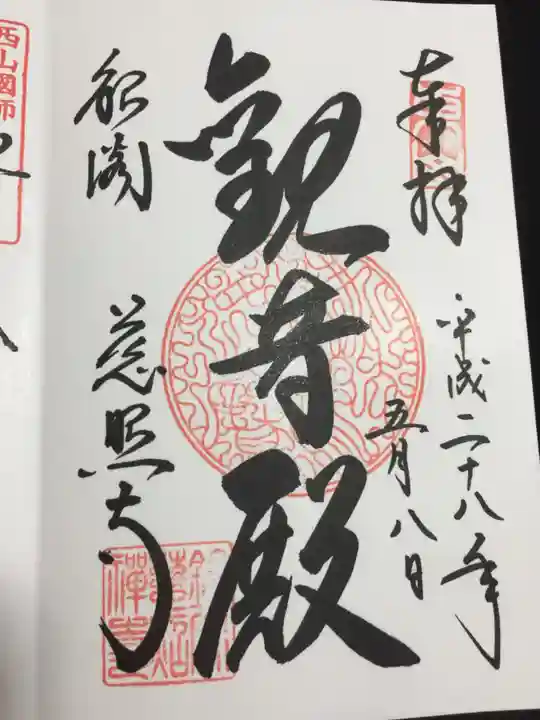 奉拝
平成二十八年
五月八日
觀音殿
銀閣
慈照寺
西山國師